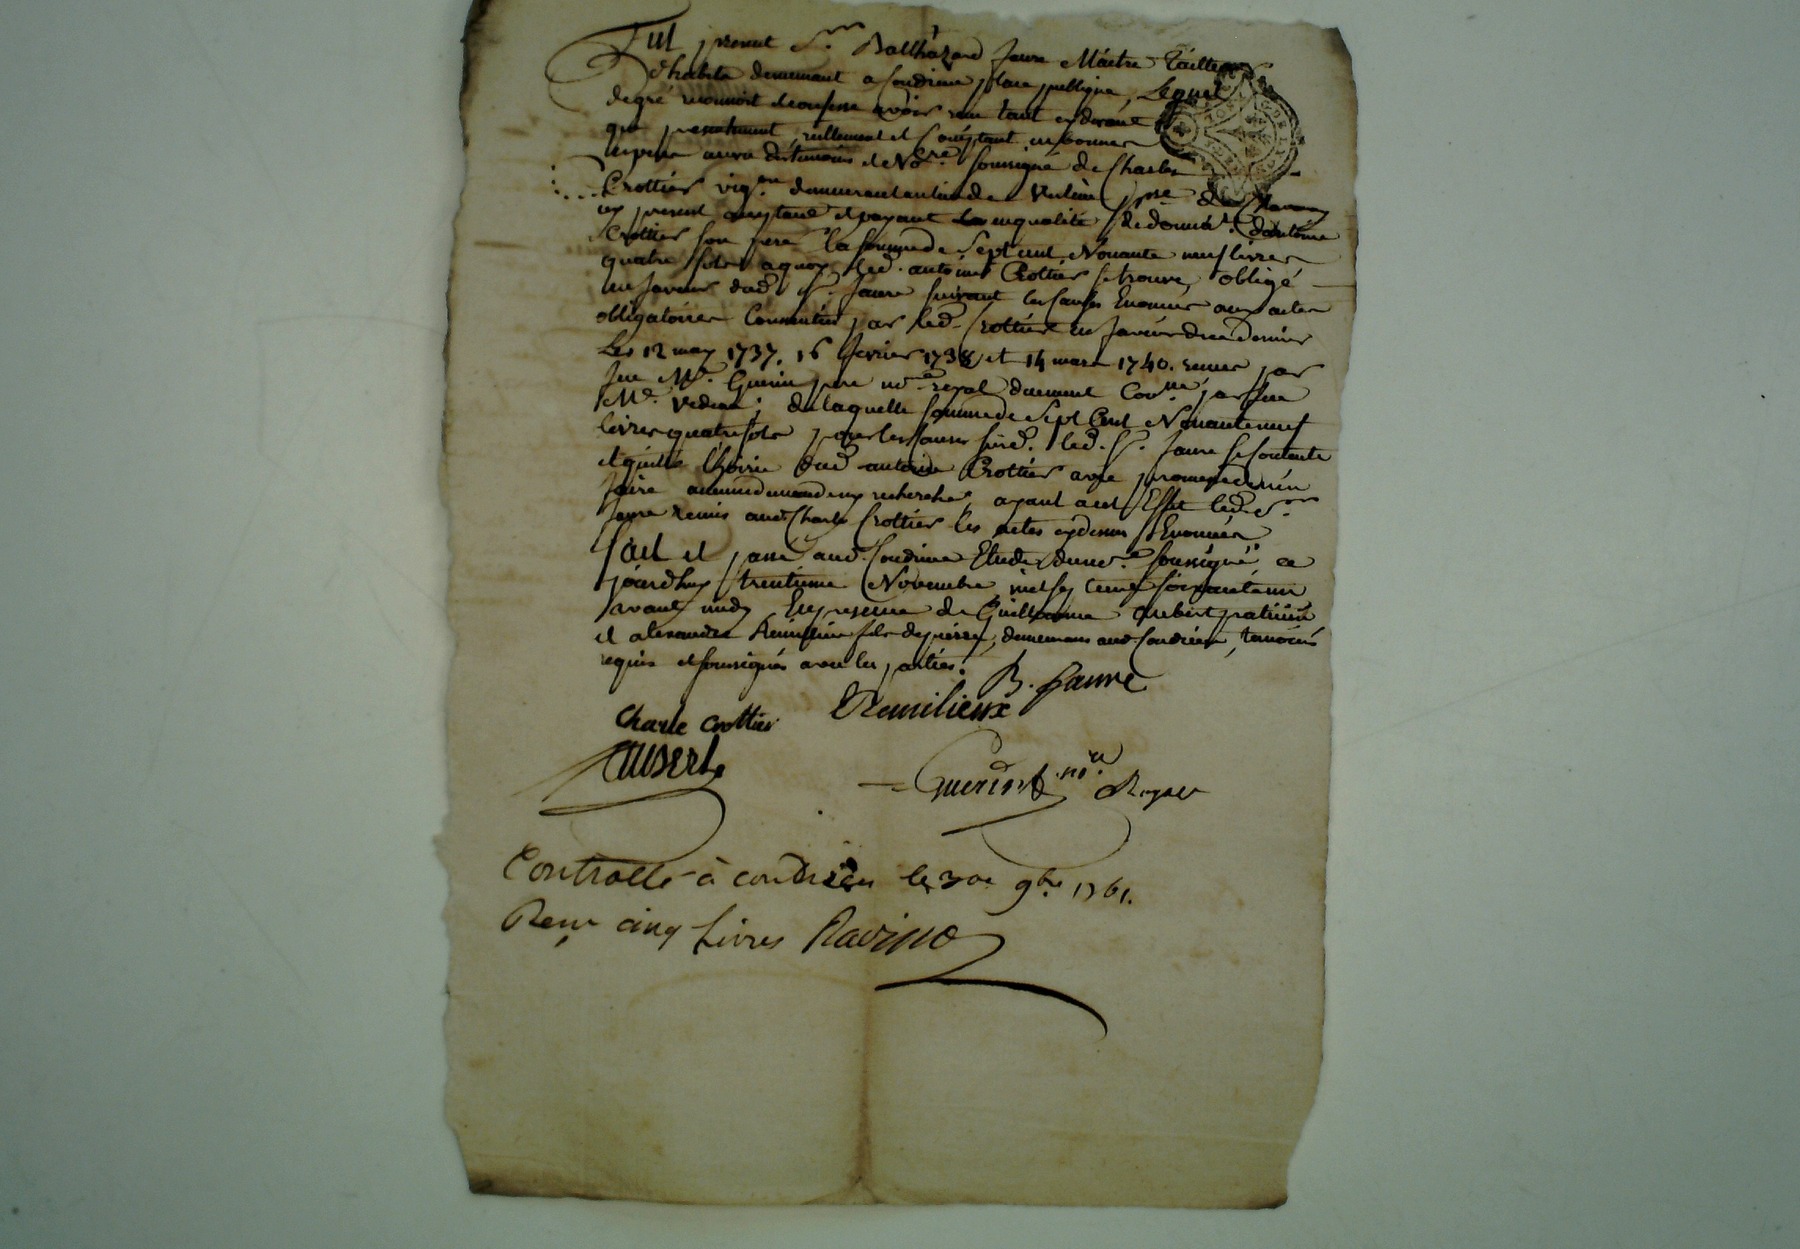 Fut present Sr. Balthazard Faure Maitre Tailleur
d'habits demeurant a Condrieu place publique, Lequel
de gré reconnoit et confesse avoir reçu tant cy devant
que presentement, reellement et comptant en bonnes
especes au vu des temoins et Nore. soussigné de Charles
Crottier vigon. demeurant au lieu de
icy present acceptant et payant en qualité de donnatre. d'antoine
Crottier son pere la somme de Sept cent Nonante neuf livres
quatre sols a quoy led. antoine Crottier se trouve obligé
en faveur dud. Sr. faure suivant les causes Enoncées aux actes
obligatoires Consentis par led. Crottier en faveur de ce dernier
Les 12 may 1737. 16 fevrier 1738 et 14 mars 1740. reçues par
feu Me. Guerin pere nore. royal duement Conlle. par feu
Me. de laquelle somme de Sept Cent Nonante neuf
livres quatre sols pour les causes susd. led. Sr. faure se contente
et quitte l'hoirie dud. antoine Crottier avec promesse de n'en
faire aucune demande ny recherche, ayant a cet Effet led. Sr.
faure remis aud. Charle Crottier les actes cy dessus Enoncées
fait et passé aud. Condrieu Etude du nore. soussigné ce
jourd'huy trentieme Novembre mil sept cent soixante un
avant midy En presence de Guillaume Aubert patissier
et alexandre Remilieux fils de pierre, demeurans aud. Condrieu, temoins
requis et soussignés avec les parties.
B. faure
Charle Crottier Remilieux
Aubert
Guerin nore Royal
Controllé à condrieu le 30e 9bre 1761.
Reçu cinq Livres Ravino